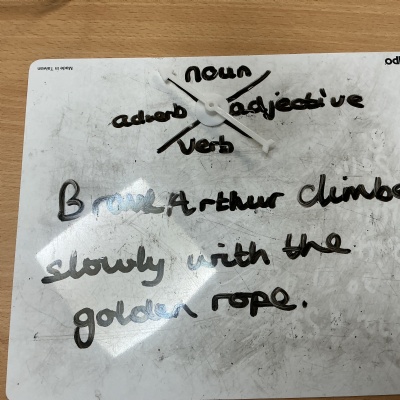 noun
adverb adjective
verb
Brave Arthur climbe
slowly with the
golden rope.
Made in Taiwan